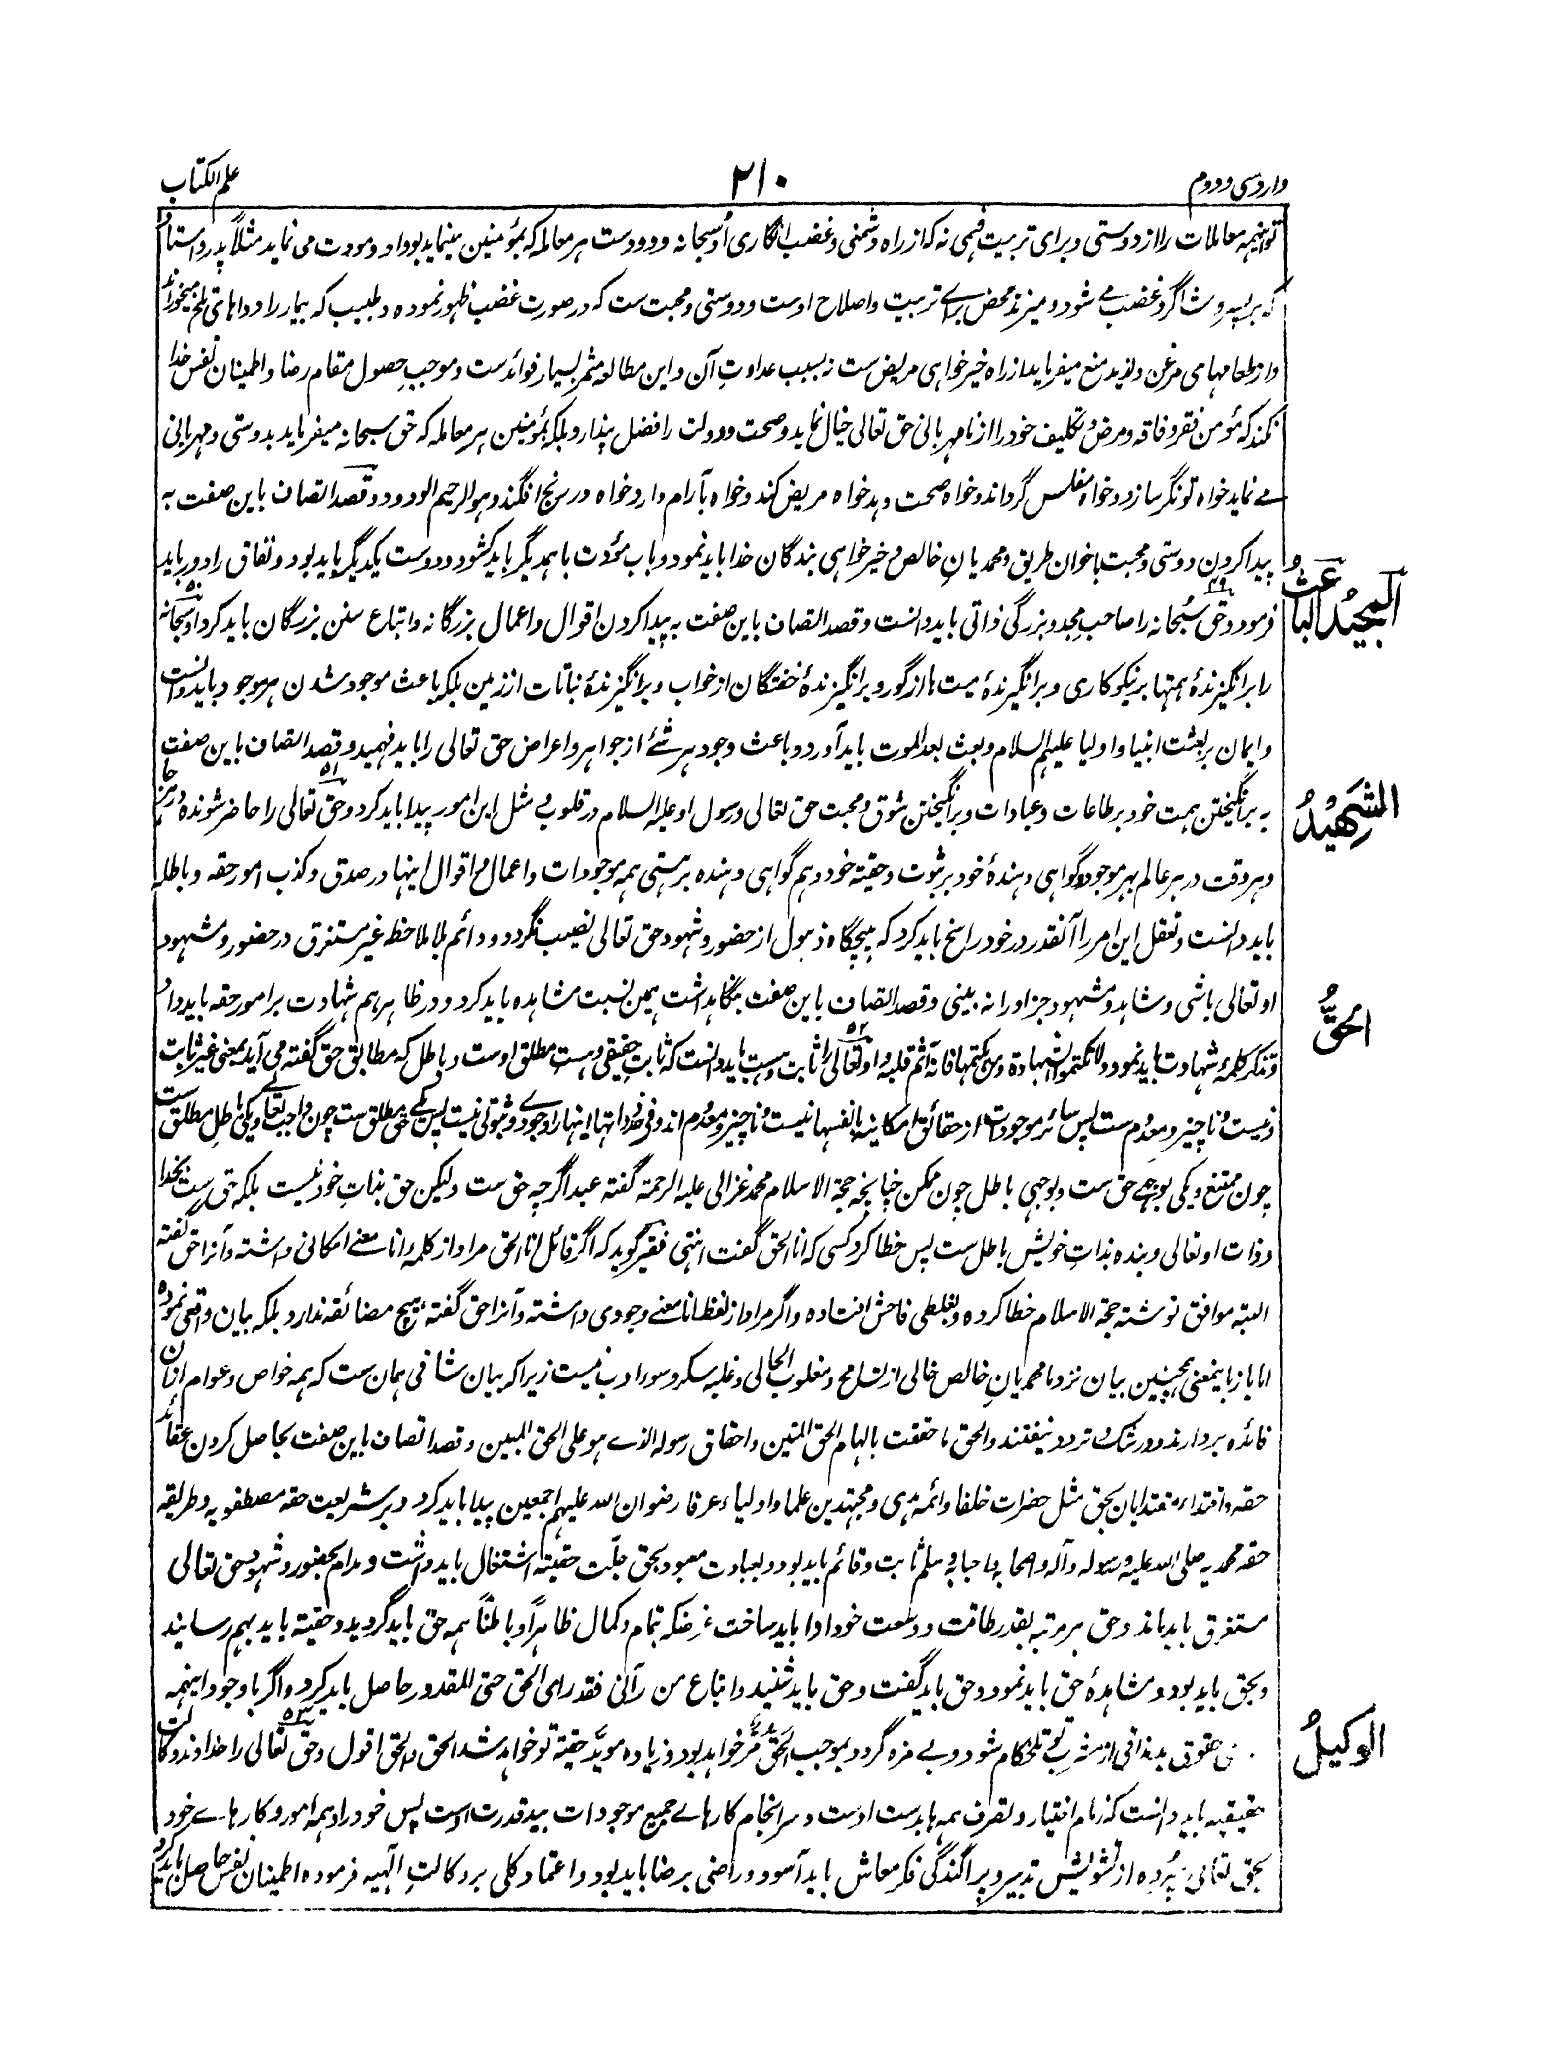 وارد سی و دوم
۲۱۰
علم الکتاب
تو اینهمه معاملات را از دوستی و برای تربیت فهمی نه که از راه دشمنی و غضب انگاری او سبحانه ودود ست هر معامله که بمؤمنین مینماید بوداد و مودت می نماید مثلاً پدر و استاد
که بر پسر و شاگرد غضب می شود و میزند محض برای تربیت و اصلاح اوست و دوستی و محبت ست که در صورت غضب ظهور نموده و طبیب که بیمار را دواهای تلخ میخوراند
و از طعامهای مرغن و لذید منع میفرماید از راه خیرخواهی مریض ست نه بسبب عداوتِ آن و این مطالعه مثمر بسیار فوائد ست و موجبِ حصول مقام رضا و اطمینان نفس خدا
نکند که مؤمن فقر و فاقه و مرض و تکلیف خود را از نامهربانی حق تعالی خیال نماید و صحت و دولت را فضل پندارد بلکه بمؤمنین هر معامله که حق سبحانه میفرماید بدوستی و مهربانی
می نماید خواه تونگر سازد و خواه مفلس گرداند و خواه صحت دهد خواه مریض کند و خواه بآرام دارد خواه در رنج افگند و هو الرحیم الودود و قصد اتصاف باین صفت به
پیدا کردن دوستی و محبت باخوان طریق و محمدیانِ خالص و خیرخواهی بندگان خدا باید نمود و باب مودّت با همدیگر باید کشود و دوست یکدیگر باید بود و نفاق را دور باید
المجیدُ الباعثُ
فرمود و حق سُبحانه را صاحبِ مجد و بزرگی ذاتی باید دانست و قصد اتصاف باین صفت به پیدا کردن اقوال و اعمال بزرگانه و اتباع سنن بزرگان باید کرد او سبحانه
را برانگیزندهٔ همتها بر نیکوکاری و برانگیزندهٔ میت ها از گور و برانگیزندهٔ خفتگان از خواب و برانگیزندهٔ نباتات از زمین بلکه باعث موجود شدن هر موجود باید دانست
و ایمان بر بعثت انبیا و اولیا علیهم السلام و بعث بعد الموت باید آورد و باعث وجود هر شئ از جواهر و اعراض حق تعالی را باید فهمید و قصد اتصاف باین صفت
الشَهیْدُ
به برانگیختن همت خود بر طاعات و عبادات و برانگیختن شوق و محبت حق تعالی و رسول او علیه السلام در قلوب و مثل این امور پیدا باید کرد و حق تعالی را حاضر شونده در هر جا
و هر وقت در هر عالم بهر موجود و گواهی دهندهٔ خود بر ثبوت و حقیة خود و هم گواهی دهنده بر هستی همه موجودات و اعمال و اقوال اینها در صدق و کذب امور حقه و باطله
باید دانست و تعقل این امر را آنقدر در خود راسخ باید کرد که هیچگاه ذهول از حضور و شهود حق تعالی نصیب نگردد و دائم بلا ملاحظه غیر مستغرق در حضور و شهود
او تعالی باشی و شاهد و مشهود جز او را نه بینی و قصد اتصاف باین صفت بنگاهداشت همین نسبت مشاهده باید کرد و در ظاهر هم شهادت بر امور حقه باید داد
الحقُّ
و تذکر کلمهٔ شهادت باید نمود و لا تکتموا الشهادة و من یکتمها فانه آثم قلبه و او تعالی را ثابت و هست باید دانست که ثابتِ حقیقی و هستِ مطلق اوست و باطل که مطابق حق گفته می آید بمعنی غیر ثابت
و نیست و ناچیز و معدوم ست پس سائر موجودات از حقائق امکانیه بانفسها نیست و ناچیز و معدوم اند و فی حد ذاتها اینها را وجودی و ثبوتی نیست پس یکی حق مطلق ست چون واجب تعالی و یکی باطلِ مطلق ست
چون ممتنع و یکی بوجهی حق ست و بوجهی باطل چون ممکن چنانچه حجة الاسلام محمد غزالی علیه الرحمة گفته عبد اگرچه حق ست ولیکن حق بذاتِ خود نیست بلکه حق ست بخدا
و ذات او تعالی و بنده بذاتِ خویش باطل ست پس خطا کرد کسی که انا الحق گفت انتهی فقیر گوید که اگر قائل انا الحق مراد از کلمه انا معنی امکانی داشته و آنرا حق گفته
البته موافق نوشته حجة الاسلام خطا کرده و بغلطی فاحش افتاده و اگر مراد از لفظ انا معنی وجودی داشته و آنرا حق گفته هیچ مضائقه ندارد بلکه بیان واقعی نموده
اما باز باینمعنی همچنین بیان نزد ما محمدیانِ خالص خالی از تسامح و مغلوب الحالی و غلبه سکر و سوء ادب نیست زیرا که بیان شافی همان ست که همه خواص و عوام ازان
فائده بردارند و در شک و تردد نیفتند و الحق ما حققت بالهام الحق المتین و احقاق رسوله الذی هو علی الحق المبین و قصد اتصاف باین صفت بحاصل کردن عقائد
حقه و اقتداء مقتدایان بحق مثل حضرات خلفا و ائمه هدی و مجتهدین علما و اولیاء عرفا رضوان الله علیهم اجمعین پیدا باید کرد و بر شریعت حقه مصطفویه و طریقه
حقه محمدیه صلی الله علیه و رسوله و آله و اصحابه و احبابه و سلم ثابت و قائم باید بود و بعبادت معبود بحق جلّت حقیّته اشتغال باید داشت و مدام بحضور و شهود حق تعالی
مستغرق باید ماند و حق هر مرتبه بقدر طاقت و وسعت خود ادا باید ساخت غرضکه بتمام و کمال ظاهراً و باطناً همه حق باید گردید و حقیة باید بهم رسانید
و بحق باید بود و مشاهدهٔ حق باید نمود و حق باید گفت و حق باید شنید و اتباع من رآنی فقد رای الحق حتی المقدور حاصل باید کرد و اگر باوجود اینهمه
الوکیلُ
حقوق بد مذاقی از مشربِ تو تلخکام شود و بی مزه گردد بموجب الحقّ مُرٌّ خواهد بود و زیاده مؤیّد حقیة تو خواهد شد الحق و الحق اقول و حق تعالی را خداوند وکالت
حقیقیه باید دانست که زمام اختیار و تصرف همه ها بدست اوست و سرانجام کارهای جمیع موجودات بید قدرت اوست پس خود را و همه امور و کارهای خود
بحق تعالی سپرده از تشویش تدبیر و پراگندگی فکر معاش باید آسود و راضی برضا باید بود و اعتماد کلی بر وکالتِ الٓهیه فرموده اطمینان نفس حاصل باید کرد